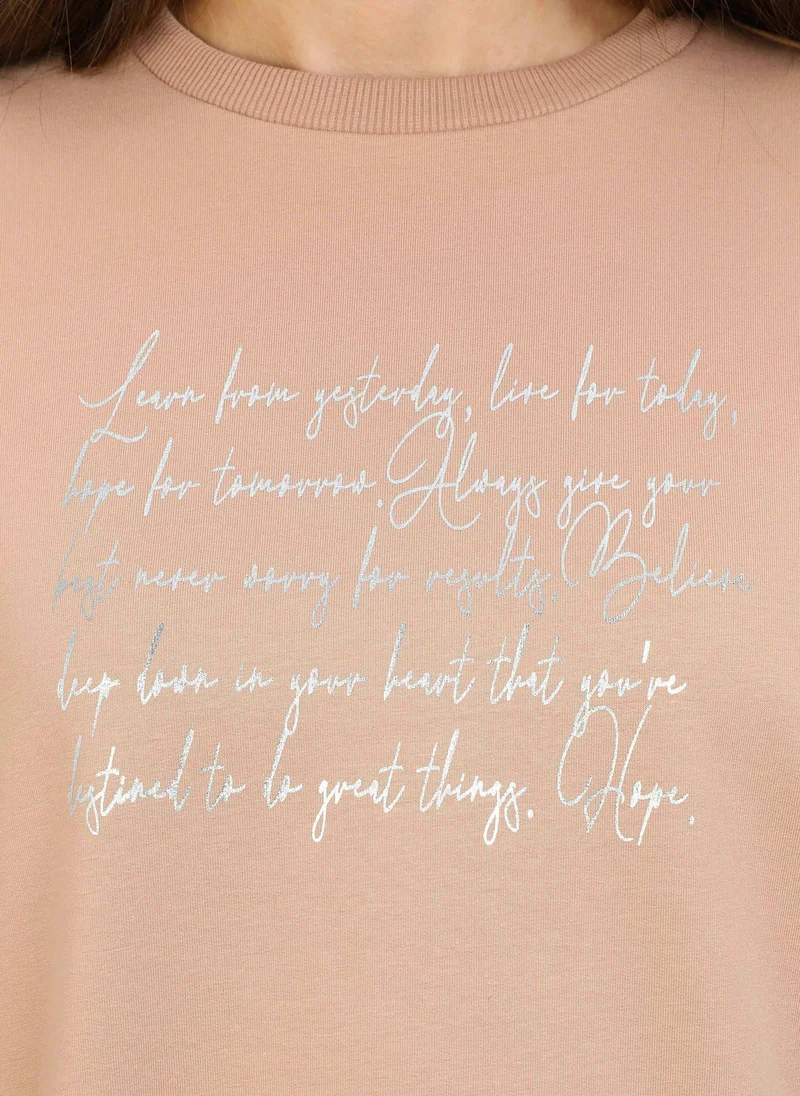 Learn from yesterday, live for today,
hope for tomorrow. Always give your
best never worry for results. Believe
deep down in your heart that you've
destined to do great things. Hope.